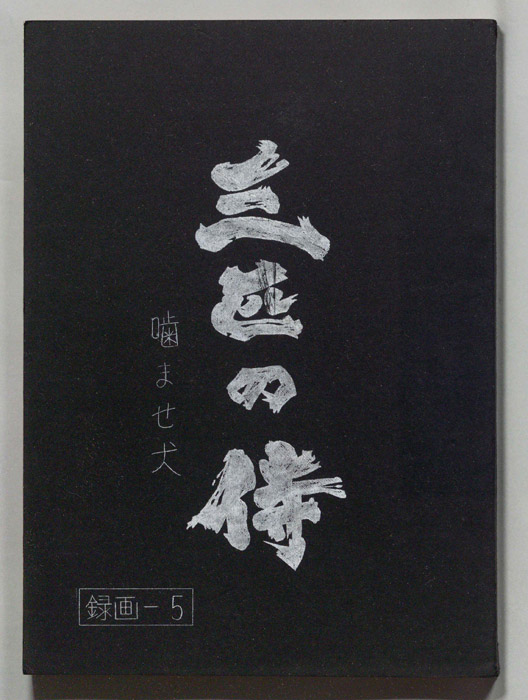 三匹の侍
噛ませ犬
録画－5